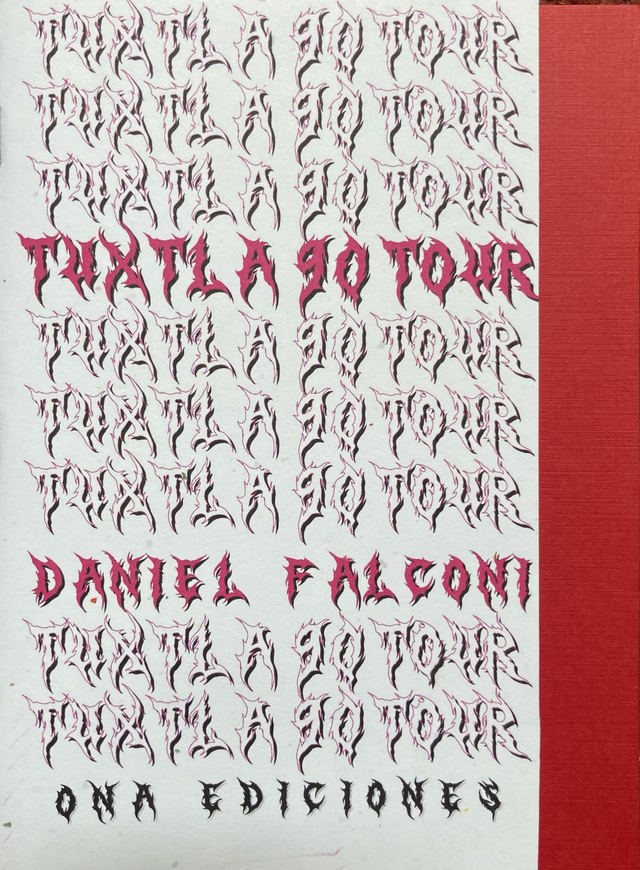 TUXTLA 90 TOUR
TUXTLA 90 TOUR
TUXTLA 90 TOUR
TUXTLA 90 TOUR
TUXTLA 90 TOUR
TUXTLA 90 TOUR
TUXTLA 90 TOUR
DANIEL FALCONI
TUXTLA 90 TOUR
TUXTLA 90 TOUR
ONA EDICIONES